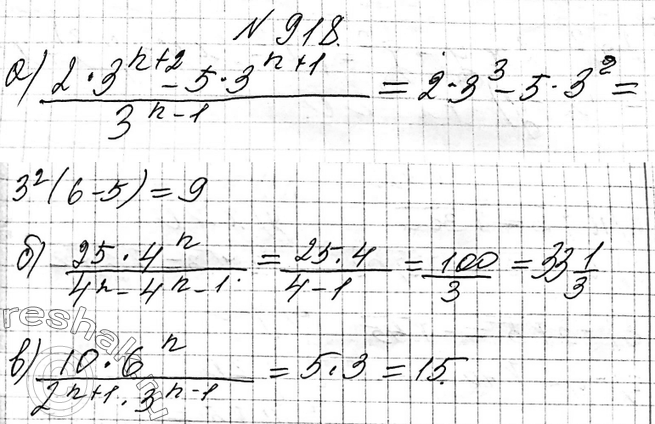 № 918.
а) (2·3^(n+2) - 5·3^(n+1))/3^(n-1) = 2·3^3 - 5·3^2 =
3^2(6-5) = 9
б) (25·4^n)/(4^n - 4^(n-1)) = (25·4)/(4-1) = 100/3 = 33 1/3
в) (10·6^n)/(2^(n+1)·3^(n-1)) = 5·3 = 15.
reshak.ru